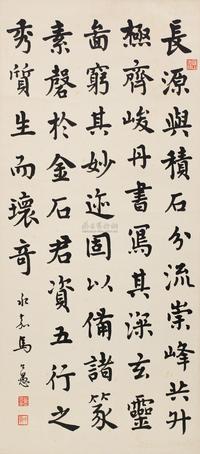 長源與積石分流崇峰共升
極齊峻丹書寫其深玄靈
啚窮其妙迹固以備諸篆
素磬於金石君資五行之
秀質生而瓌奇
永嘉馬公愚